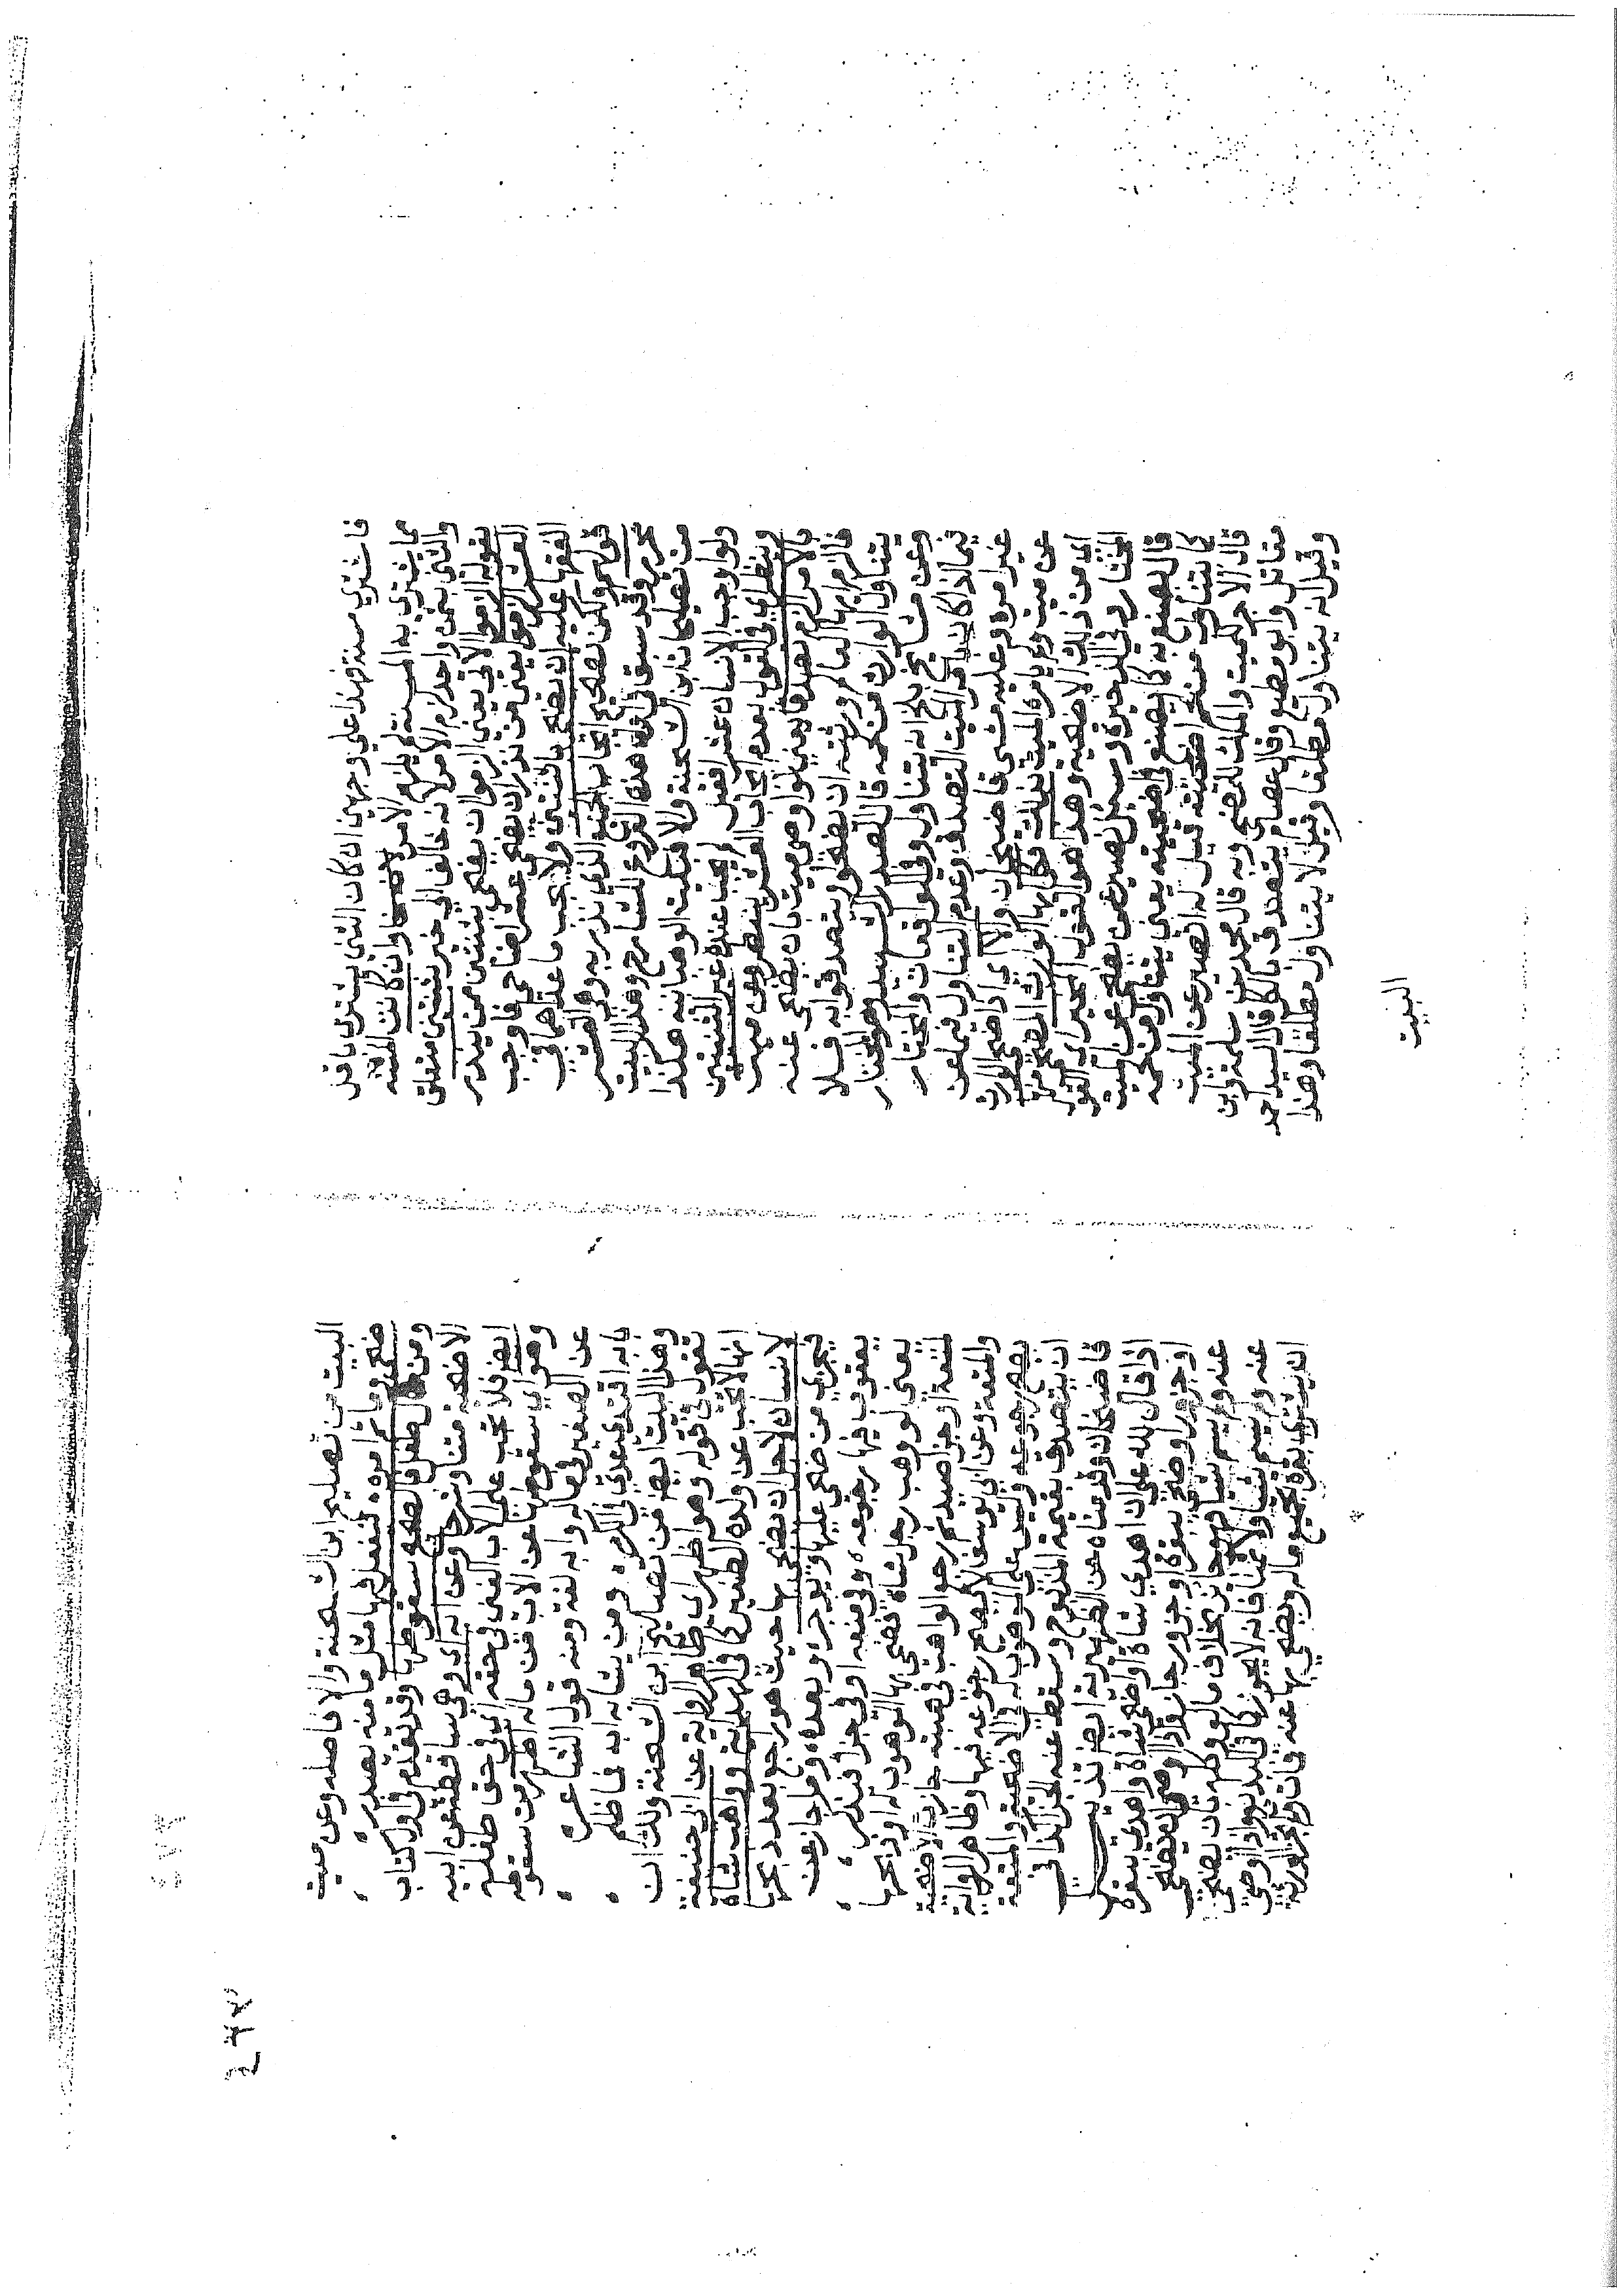 فاشتري مسنة فهذا علي وجهين ان كان الثني يشتري باقل
مما يشتري به المسنة لم يلزم الامر وان كانت المسنة
والثني بثمن واحد لزم الامر لانه خالف الي خير ثنتين متعلق
بقوله الزموا الاتي يعني الزموا ان يضحي بثنتين من ينذر
العشر الزموا يعني من نذر ان يضحي عشر اضاحي فاوجب
الفقها عليه ان يضحي بالثنتين ولا يجب ما عداهما في
قولهم ولكن تصحيح ايجاب الجميع الذي نذر به وهو العشر
محرر وقد سبق في اول هذه الفروع للشارح وهذا البيت
من تصليح ابن الشحنة والا فبيت الوهبانية هكذا
ولو اوجب الانسان عشرا فقيل لم يجب عنده غير الثنتين
وينظر اي في القول بعدم ايجاب العشر ينظر وعن ميت
بالامر الزم تصدقا يعني لو اوصي ميت بان يضحي عنه
فالزم بها المامور ورثته ان يضحوا ويتصدقوا به فلا
يتناول الوارث من لحمه قال الصدر الشهيد وهو المختار
وعن مشايخ بلخ انه يتناول وفي الواقعات والمختار
فيما اذا كان بامر الميت التصدق وعدم التناول فيما عن
غير امره وعليه مشي قاضيخان والا اي اذا ضحي الوارث
عن ميت ولم يامره الميت بذلك فكل بها الوارث المضحي
اي من ذلك الاضحية وهذا هو القول المخير اي القول
المختار وفي الذخيرة وسئل نصير عمن يضحي عن الميت
قال يصنع به كما يصنع في اضحيته يعني يتناول من لحمه
كما يتناول من لحم اضحيته قيل له اتصير عن الميت
قال الاجر للميت والملك للمضحي وبه قال محمد بن سلمة وابن
مقاتل وابو مطيع وقال عصام يتصدق بالكل قال السيد احمد
وقيل انه يتناول مطلقا وقيل لا يتناول مطلقا وهذا
البيت
البيت من تصليح ابن الشحنة والا فاصله وعن ميت
ضحي وما ثم امره ، لنفعل بها مثل ما منه يصدر ،
ومن مال طفل فالصحيح سقوطها وقد تقدم في اول كتاب
الاضحية متنا وشرحا وعن ابه اي وهي ساقطة عن ابيه
ايضا فلا تجب علي الاب الغني في حقه اي في حق طفله
وهو اي سقوطها عن الاب من ماله اظهر من سقوطه
عن الصغير في ماله واب لغة ومنه قول الشاعر ،
بابه اقتدي عدي في الكرم ، ومن يشابه ابه فما ظلم ،
وهذا البيت ايضا من تصليح ابن الشحنة ولك ان
تقول في قوله وهو اظهر اي ظاهر الرواية عن ابي حنيفة
انها لا تجب عن ولده الصغير كما في الهداية وواهب شاة
لانسان لاجل ان يضحي بها حيث هو رجع بعد ذبحها
فيجزي من ضحي عليها ويوجر ، وبعده وما جاز عن
يعقوب فيها رجوعه ، وفي متعة او في جزا فيذكر ،
يعني لو وهب رجل شاة فضحي بها الموهوب له او ذبحها
لمتعة او جزا صيد ثم رجع الواهب في هبته جازت الاضحية
والمتعة وعن ابي يوسف لا يصح رجوعه فيها وظاهر الرواية
يصح رجوعه وليس علي الموهوب له في الاضحية والمتعة
ان يتصدق بقيمة المذبوح وسقط عنه الجزا كذا في
قاضيخان وقدمناه عن الظهيرية ايضا تذييل
اذا قال لله علي ان اهدي شاة او اضحي بشاة واهدي بقرة
او جزورا وضحي ببقرة او جزور جاز ولو اوصي بان يضحي
عنه ولم يسم شيا فهو جايز بخلاف ما لو وكله بان يضحي
عنه ولم يسم شيا ولا ثمنا فانه لا يجوز كما في البدايع ولو اوصي
ان يشتري بقرة بجميع ماله ويضحي بها عنه فمات ولم تجز الورثة